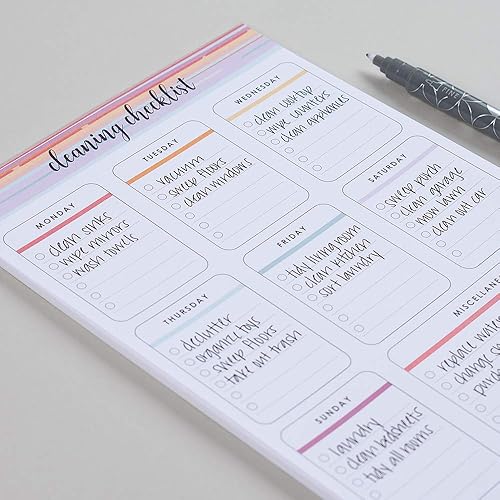 cleaning checklist
MONDAY
clean sinks
wipe mirrors
wash towels
TUESDAY
vacuum
sweep floors
clean windows
WEDNESDAY
clean cooktop
wipe counters
clean appliances
THURSDAY
declutter
organize toys
sweep floors
take out trash
FRIDAY
tidy living room
clean kitchen
sort laundry
SATURDAY
sweep porch
clean garage
mow lawn
clean out car
SUNDAY
laundry
clean bedsheets
tidy all rooms
MISCELLANE
replace water
change
FINE